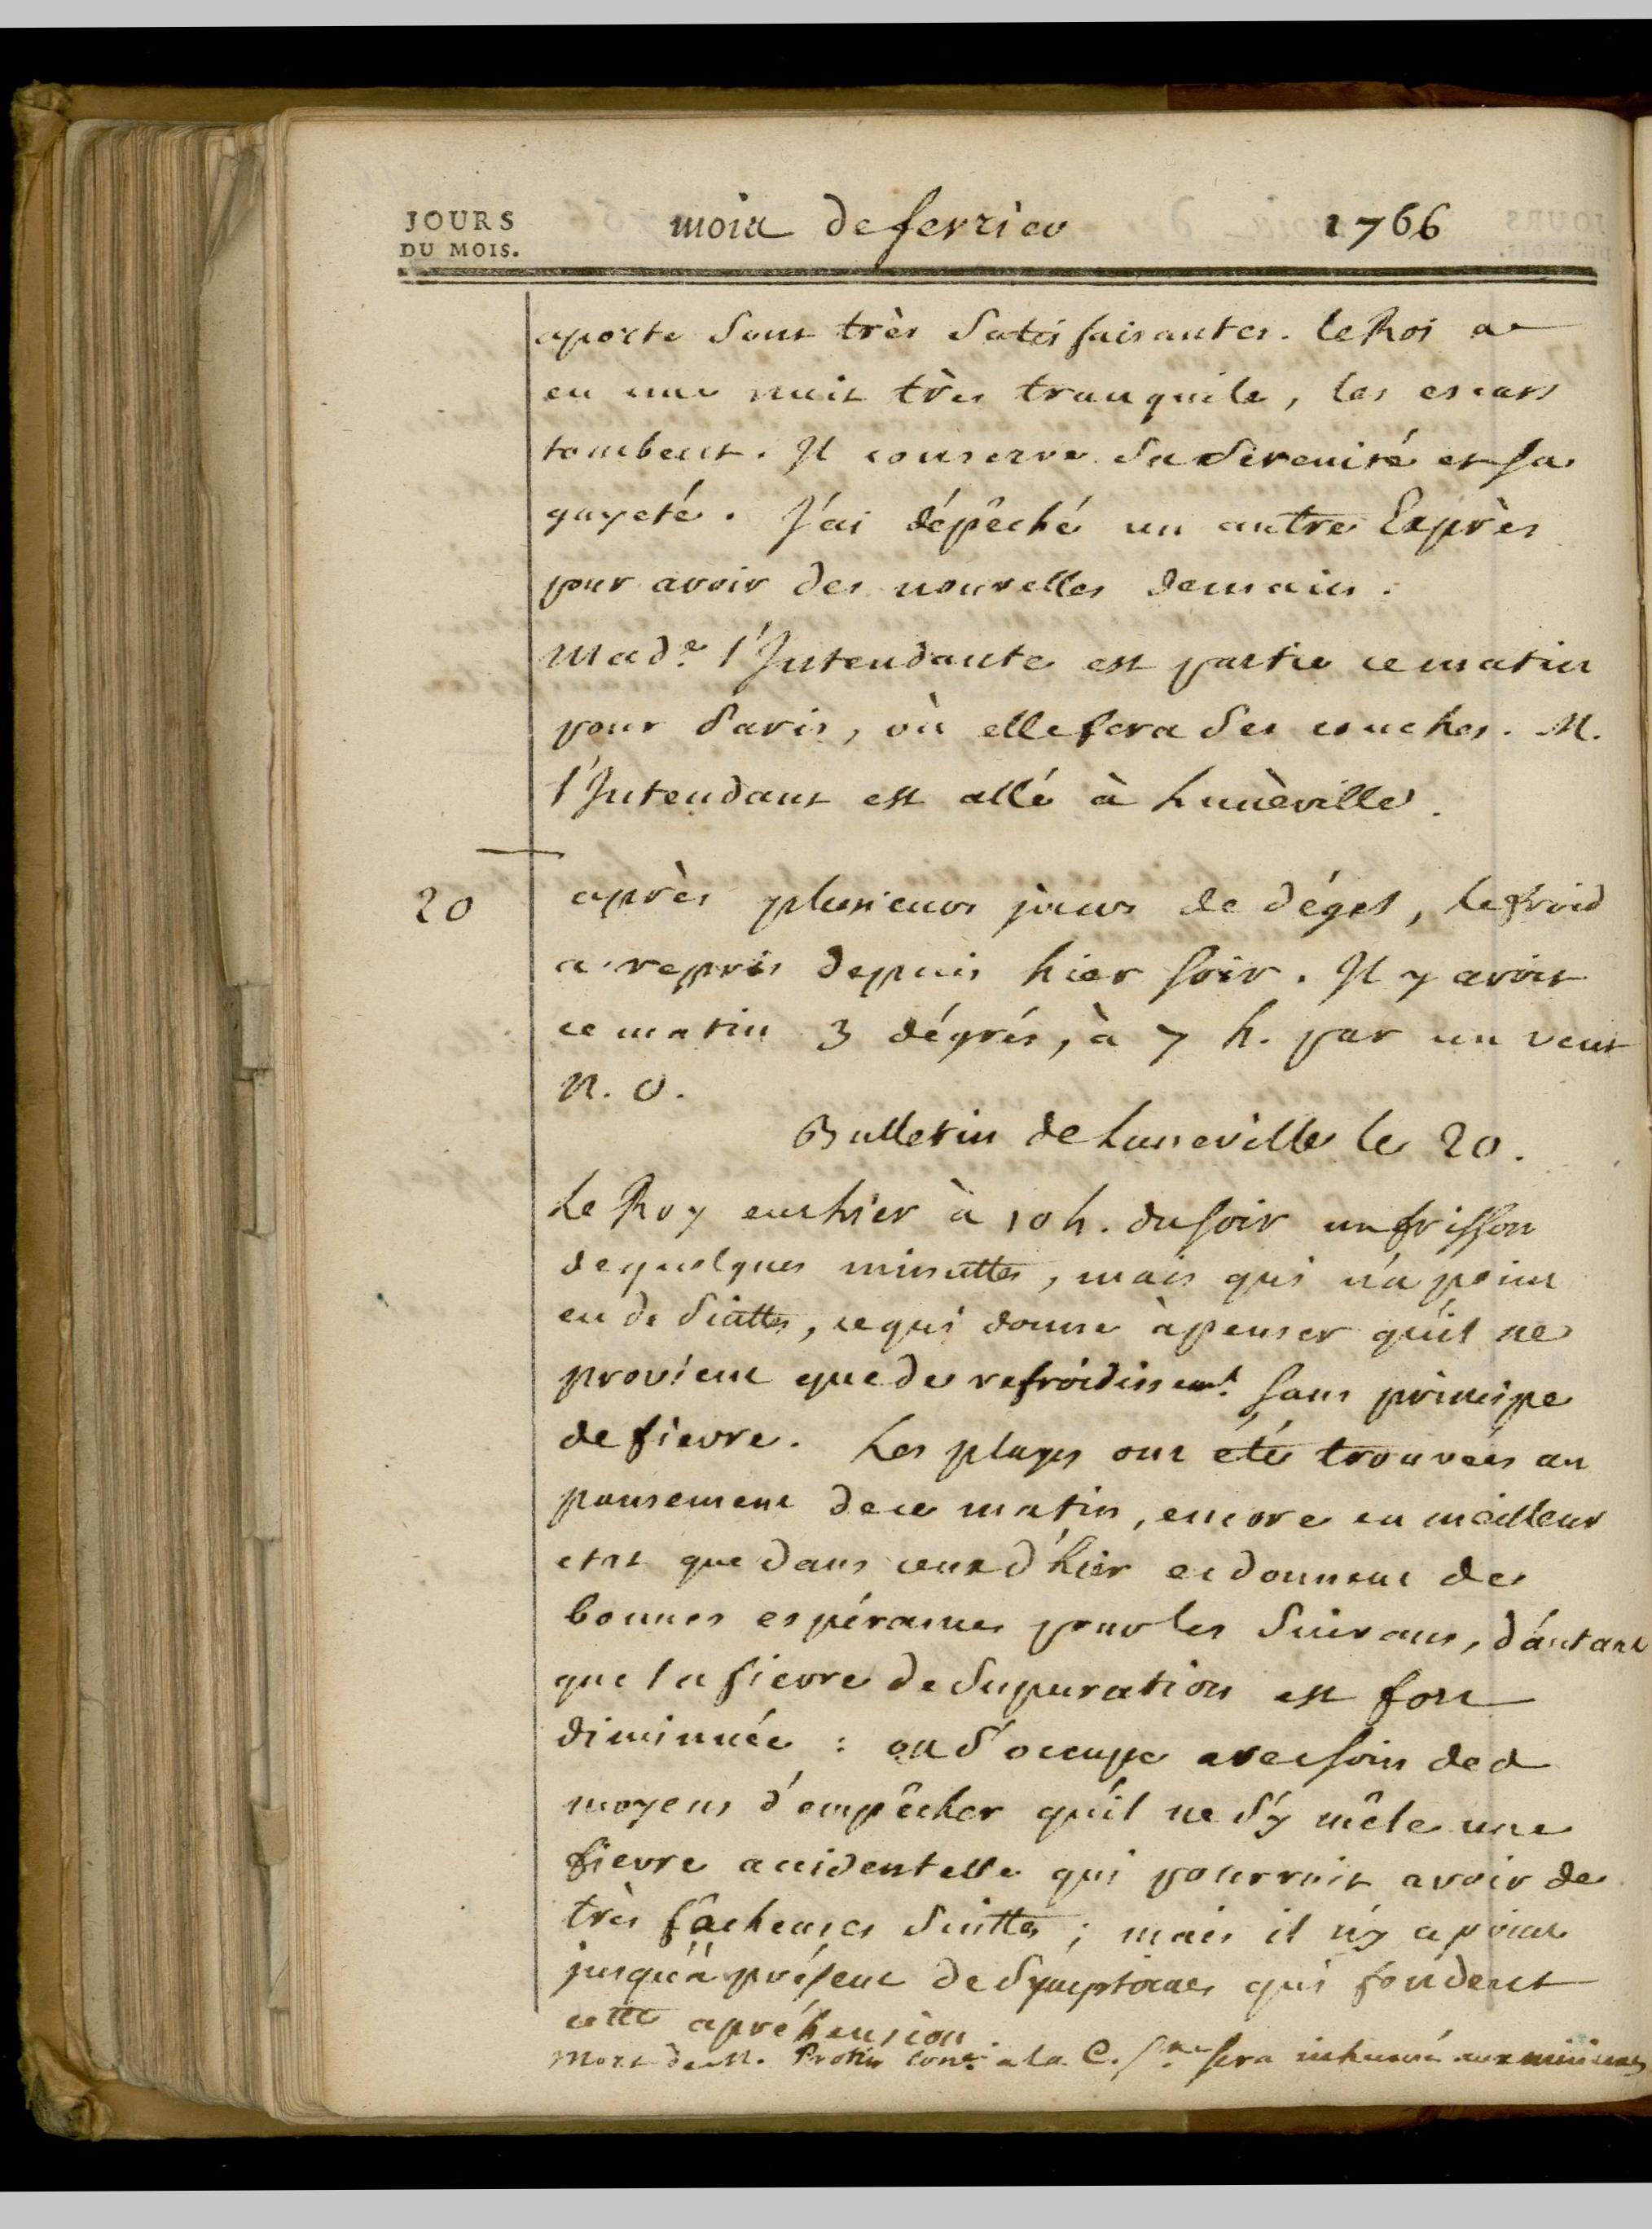 JOURS
DU MOIS.
mois de fevrier 1766
aporte sont très satisfaisantes. le Roi a
eu une nuit très tranquile, les escars
tombent. Il conserve sa serenité et sa
gayeté. J'ai dépêché un autre Exprès
pour avoir des nouvelles demain.
Made. l'Intendante est partie ce matin
pour Paris, où elle fera ses couches. M.
l'Intendant est allé à Lunèville.
20
après plusieurs jours de dégel, le froid
a repris depuis hier soir. Il y avoit
ce matin 3 dégrés, à 7 h. par un vent
N. O.
Bulletin de Luneville le 20.
Le Roy eut hier à 10 h. du soir un frisson
de quelques minuttes, mais qui n'a point
eu de suittes, ce qui donne à penser qu'il ne
provient que de refroidissemt. sans principe
de fievre. Les playes ont été trouvées au
pansement de ce matin, encore en meilleur
etat que dans ceux d'hier et donnent des
bonnes espérances pour les suivans, d'autant
que la fievre de supuration est fort
diminuée : on s'occupe avec soin des
moyens d'empêcher qu'il ne s'y mêle une
fievre accidentelle qui pourroit avoir de
très fâcheuses suittes ; mais il n'y a point
jusqu'à présent de symptomes qui fondent
cette apréhension.
Mort de M. Protin conr. a la C. Sne sera inhumé aux minimes